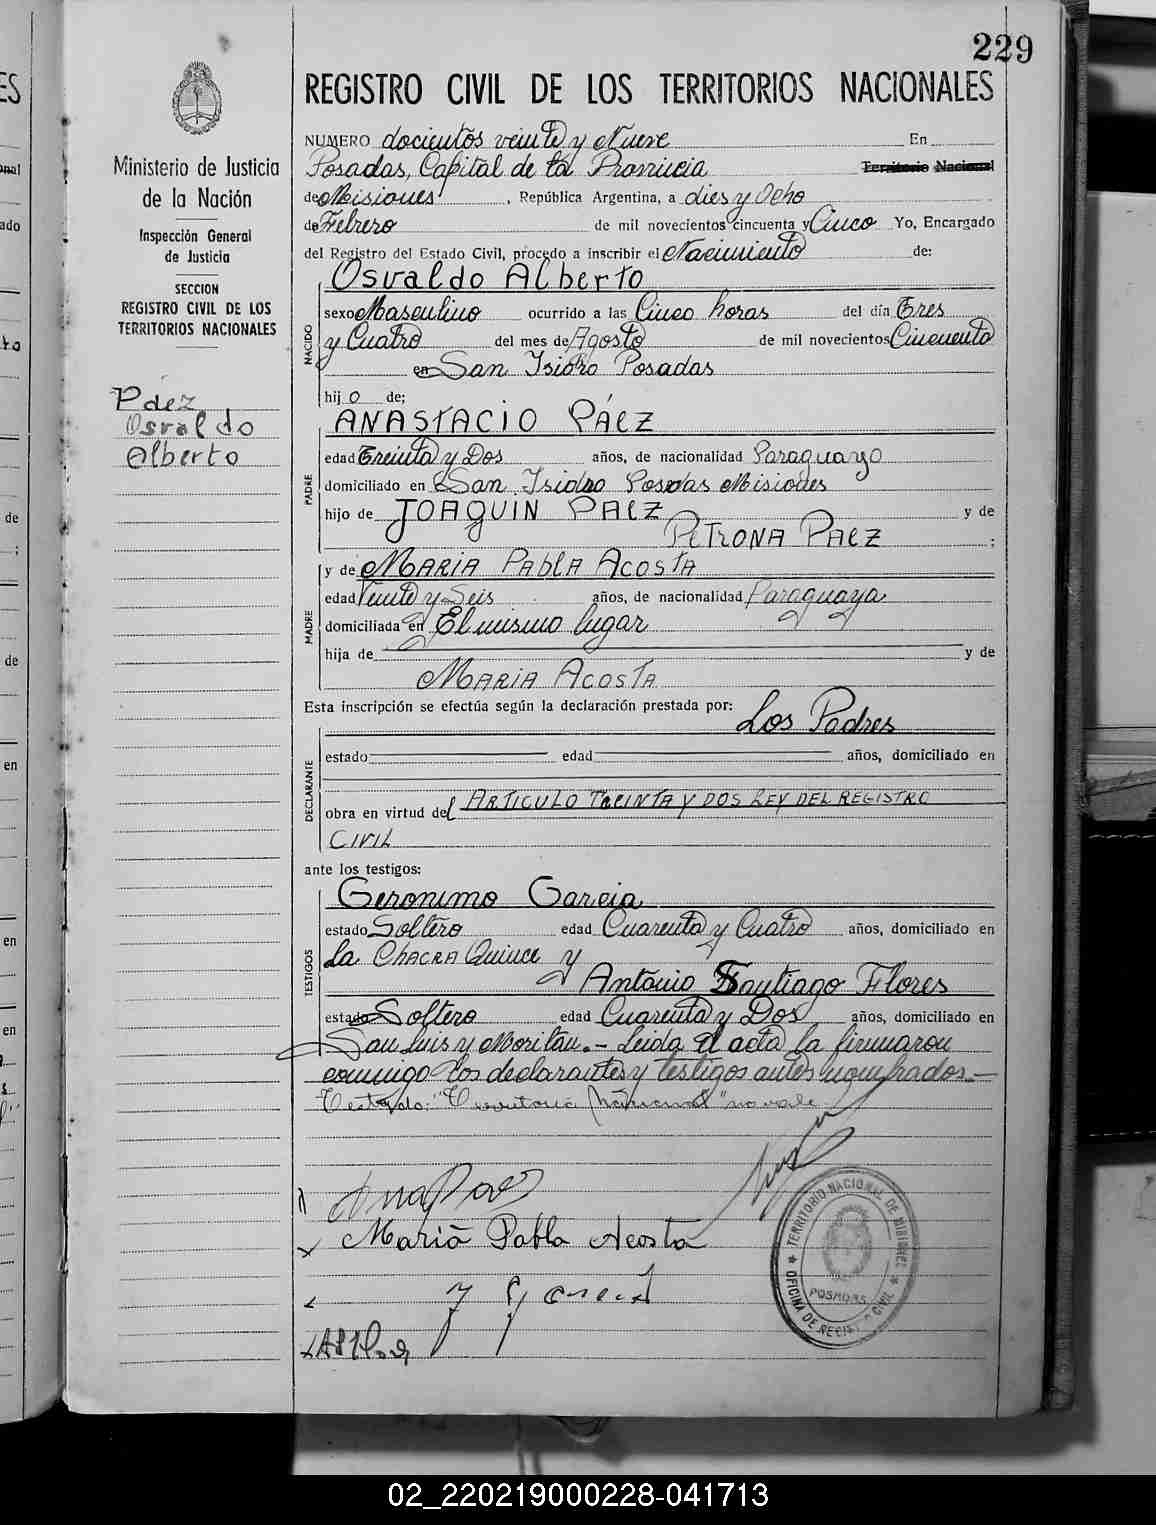 229
REGISTRO CIVIL DE LOS TERRITORIOS NACIONALES
Ministerio de Justicia
de la Nación
Inspección General
de Justicia
SECCION
REGISTRO CIVIL DE LOS
TERRITORIOS NACIONALES
Páez
Osvaldo
Alberto
NUMERO docientos veinte y Nueve En
Posadas, Capital de la Provincia Territorio Nacional
de Misiones, República Argentina, a dies y Ocho
de Febrero de mil novecientos cincuenta y Cinco Yo, Encargado
del Registro del Estado Civil, procedo a inscribir el Nacimiento de:
Osvaldo Alberto
NACIDO
sexo Masculino ocurrido a las Cinco horas del día Tres
y Cuatro del mes de Agosto de mil novecientos Cincuenta
en San Isidro Posadas
hijo de:
ANASTACIO PÁEZ
PADRE
edad Treinta y Dos años, de nacionalidad Paraguayo
domiciliado en San Isidro Posadas Misiones
hijo de JOAQUIN PAEZ y de
PETRONA PAEZ ;
y de MARIA PABLA ACOSTA
MADRE
edad Veinte y Seis años, de nacionalidad Paraguaya
domiciliada en El mismo lugar
hija de y de
MARIA ACOSTA
Esta inscripción se efectúa según la declaración prestada por: Los Padres
DECLARANTE
estado edad años, domiciliado en
obra en virtud del ARTICULO TREINTA Y DOS LEY DEL REGISTRO
CIVIL
ante los testigos:
Geronimo Garcia
TESTIGOS
estado Soltero edad Cuarenta y Cuatro años, domiciliado en
La CHACRA Quince y
Antonio Santiago Flores
estado Soltero edad Cuarenta y Dos años, domiciliado en
San Luis y Moritan.- Leida el acta la firmaron
conmigo los declarantes y testigos antes nombrados.-
Testado: "Territorio Nacional" no vale
Ana Paez
María Pabla Acosta
TERRITORIO NACIONAL DE MISIONES
POSADAS
OFICINA DE REGISTRO CIVIL
02_220219000228-041713